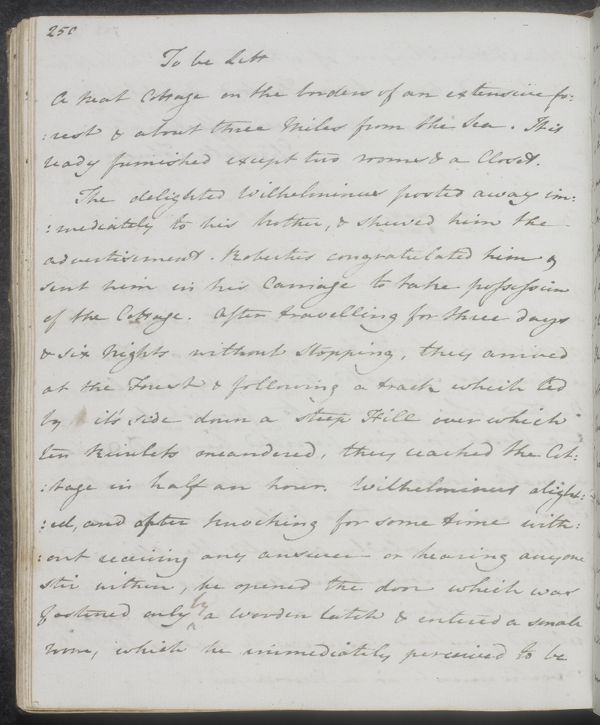 250
To be Lett
A neat Cottage on the borders of an extensive fo:
:rest & about three Miles from the Sea. Is
ready furnished except two rooms & a Closet.
The delighted Wilhelminus posted away im:
:mediately to his brother, & shewed him the
advertisement. Robertus congratulated him &
sent him in his Carriage to take possession
of the Cottage. After travelling for three days
& six Nights without Stopping, they arrived
at the Forest & following a track which led
by it's side down a steep Hill over which
ten Rivulets meandered, they reached the Cot:
:tage in half an hour. Wilhelminus alight:
:ed, and after knocking for some time with:
:out receiving any answer or hearing anyone
stir within, he opened the door which was
fastened only by a wooden latch & entered a small
room, which he immediately perceived to be